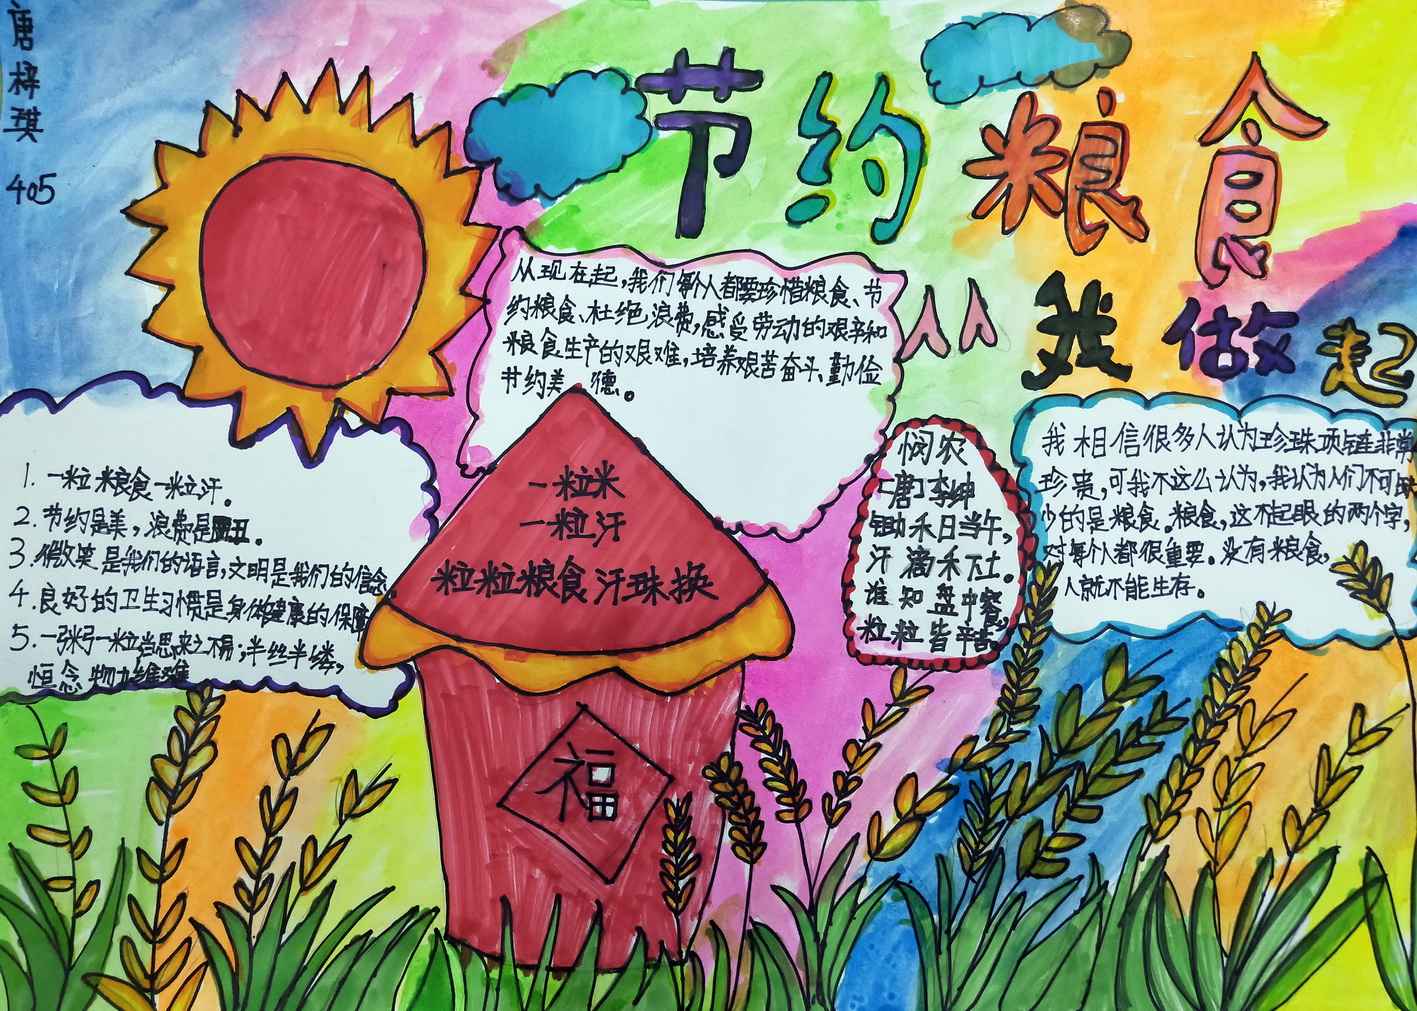 唐梓琪
405
节约粮食
从我做起
从现在起，我们每个人都要珍惜粮食、节
约粮食、杜绝浪费，感受劳动的艰辛和
粮食生产的艰难，培养艰苦奋斗、勤俭
节约美德。
1. 一粒粮食一粒汗。
2. 节约是美，浪费是丑。
3. 微笑是我们的语言，文明是我们的信念
4. 良好的卫生习惯是身体健康的保障
5. 一粥一粒当思来之不易，半丝半缕，
恒念物力维难
一粒米
一粒汗
粒粒粮食汗珠换
福
悯农
[唐]李绅
锄禾日当午，
汗滴禾下土。
谁知盘中餐，
粒粒皆辛苦。
我相信很多人认为珍珠项链非常
珍贵，可我不这么认为，我认为人们不可缺
少的是粮食。粮食，这不起眼的两个字，
对每个人都很重要。没有粮食，
人就不能生存。